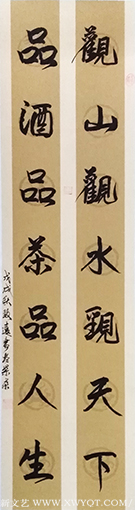 觀山觀水觀天下
品酒品茶品人生
戊戌秋月
新文艺 WWW.XWYOT.COM